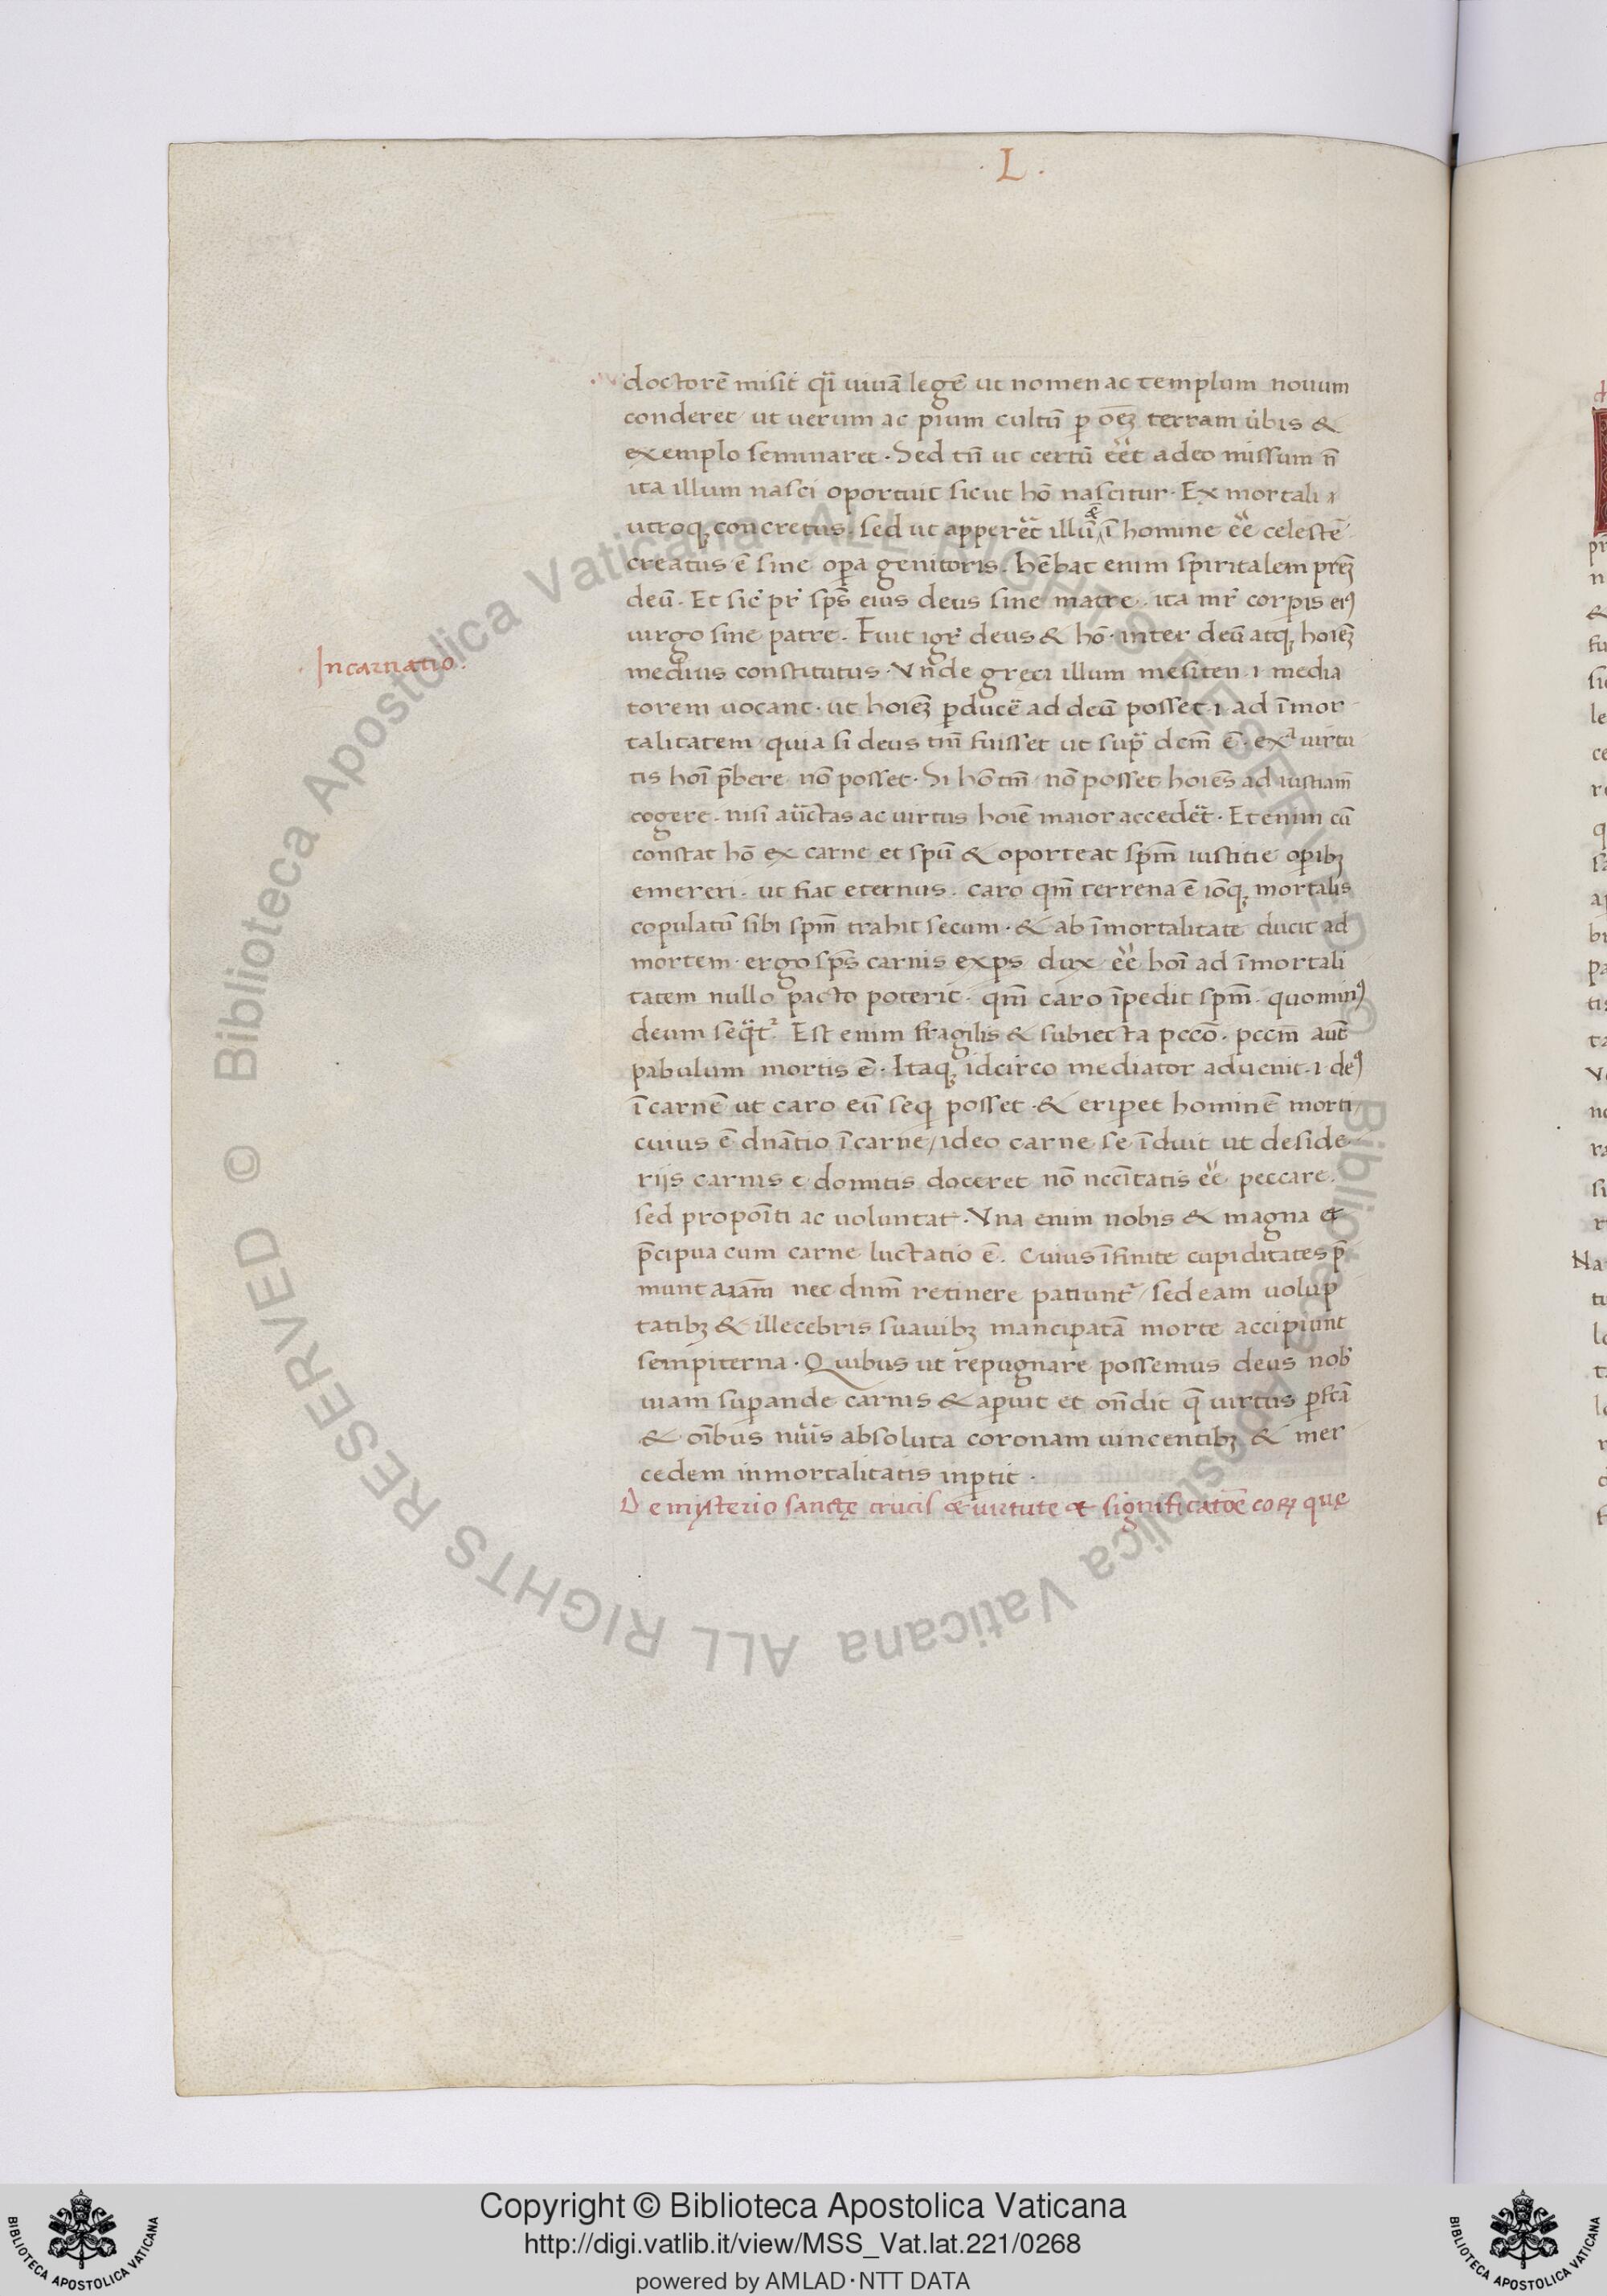 · L ·
doctorē misit q̈i uiuā legē ut nomen ac templum nouum
conderet ut uerum ac pium cultū p oēȝ terram ủbis &
exemplo seminaret · Sed tn̄ ut certū eēt adeo missum n̄
ita illum nasci oportuit sicut hō nascitur · Ex mortali ı
utroqȝ concretus · sed ut apperet illū ī homine eē celestē
creatus ē sine opa genitoris · hēbat enim spiritalem pr̄eȝ
deū · Et sic̄ pr̄ sp̄s eius deus sine matre · ita mr̄ corpis eiꝰ
uirgo sine patre · Fuit igr̄ deus & hō · inter deū atqȝ hoīeȝ
· Incarnatio ·
medius constitutus · Vnde greci illum mesiten · ı · media
torem uocant · ut hoīeȝ pducē ad deū posset · ı · ad īmor
talitatem quia si deus tm̄ fuisset ut sup̄ dcm̄ ē · exᵃ uirtu
tis hoī p̄bere nō posset · Si hō tm̄ nō posset hoīes ad iustiam̄
cogere · nisi auctas ac uirtus hoīe maior accedet · Et enim cū
constat hō ex carne et spū & oporteat spm̄ iustitie opibȝ
emereri · ut fiat eternus · caro qm̄ terrena ē iōqȝ mortalis
copulatū sibi spm̄ trahit secum · & ab īmortalitate ducit ad
mortem · ergo sp̄s carnis exps dux eē hoī ad īmortali
tatem nullo pacto poterit · qm̄ caro īpedit spm̄ · quominꝰ
deum seq̈t² Est enim fragilis & subiecta pccō · pccm̄ aut̄
pabulum mortis ē · Itaqȝ idcirco mediator aduenit · ı · deꝰ
ī carnē ut caro eū seq posset · & eripet hominē morti
cuius ē dnātio ī carne / ideo carne se īduit ut deside
rijs carnis edomitis doceret nō nccītatis eē peccare ·
sed propoīti ac voluntat · Vna enim nobis & magna et
p̄cipua cum carne luctatio ē · Cuius īfinite cupiditates p̄
munt aīam̄ nec dnm̄ retinere patiunt² / sed eam uolup
tatibȝ & illecebris suauibȝ mancipatā morte accipiunt
sempiterna · Quibus ut repugnare possemus deus nob
uiam supande carnis & apuit et on̄dit q̄ uirtus pfctā
& oībus nūis absoluta coronam uincentibȝ & mer
cedem inmortalitatis inptit ·
De mysterio sanctę crucis & uirtute et significatōe eoꝝ quę
Copyright © Biblioteca Apostolica Vaticana
http://digi.vatlib.it/view/MSS_Vat.lat.221/0268
powered by AMLAD·NTT DATA
BIBLIOTECA APOSTOLICA VATICANA
BIBLIOTECA APOSTOLICA VATICANA
© Biblioteca Apostolica Vaticana ALL RIGHTS RESERVED
© Biblioteca Apostolica Vaticana ALL RIGHTS RESERVED